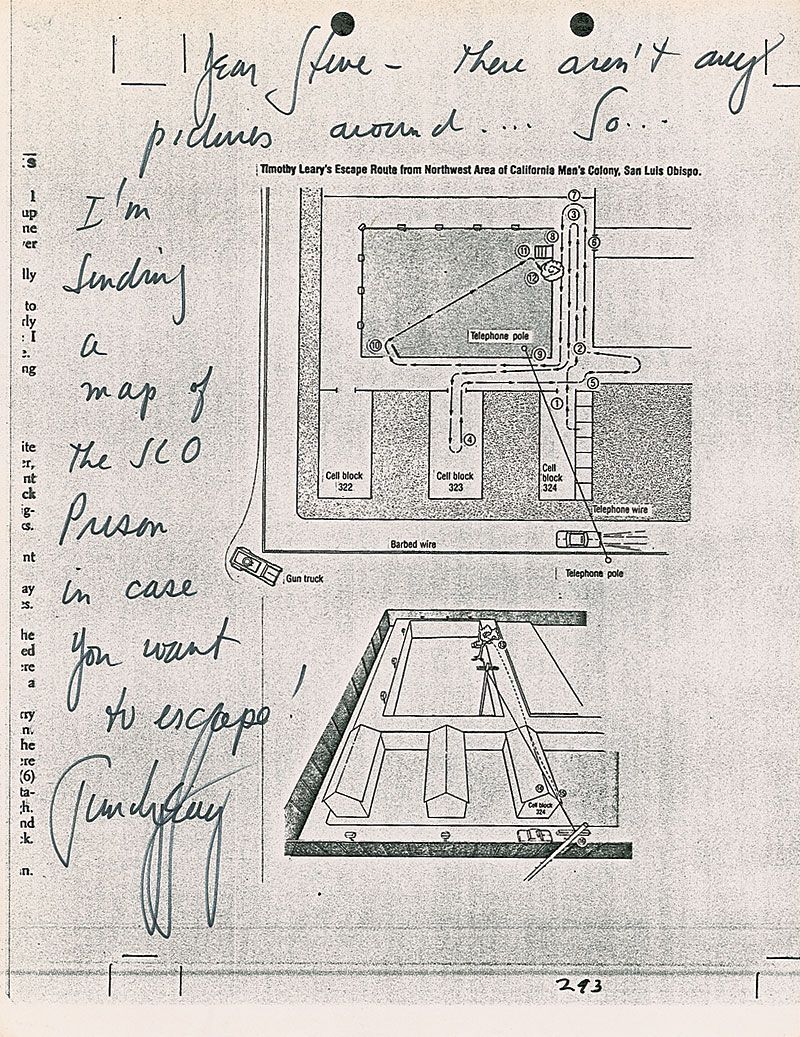 Dear Steve - There aren't any
pictures around.... So...
Timothy Leary's Escape Route from Northwest Area of California Men's Colony, San Luis Obispo.
I'm
Sending
a
map of
the SLO
Prison
in case
You want
to escape!
s
1
up
ne
er
lly
to
rly
I
ng
ite
er,
nt
ck
ig-
cs.
nt
ay
es.
he
ed
re
a
rry
n.
he
ere
(6)
ta-
h.
nd
k.
n.
7
3
8
6
11
12
Telephone pole
10
9
2
5
1
4
Cell block
322
Cell block
323
Cell
block
324
Telephone wire
Barbed wire
Gun truck
Telephone pole
Cell block
324
293